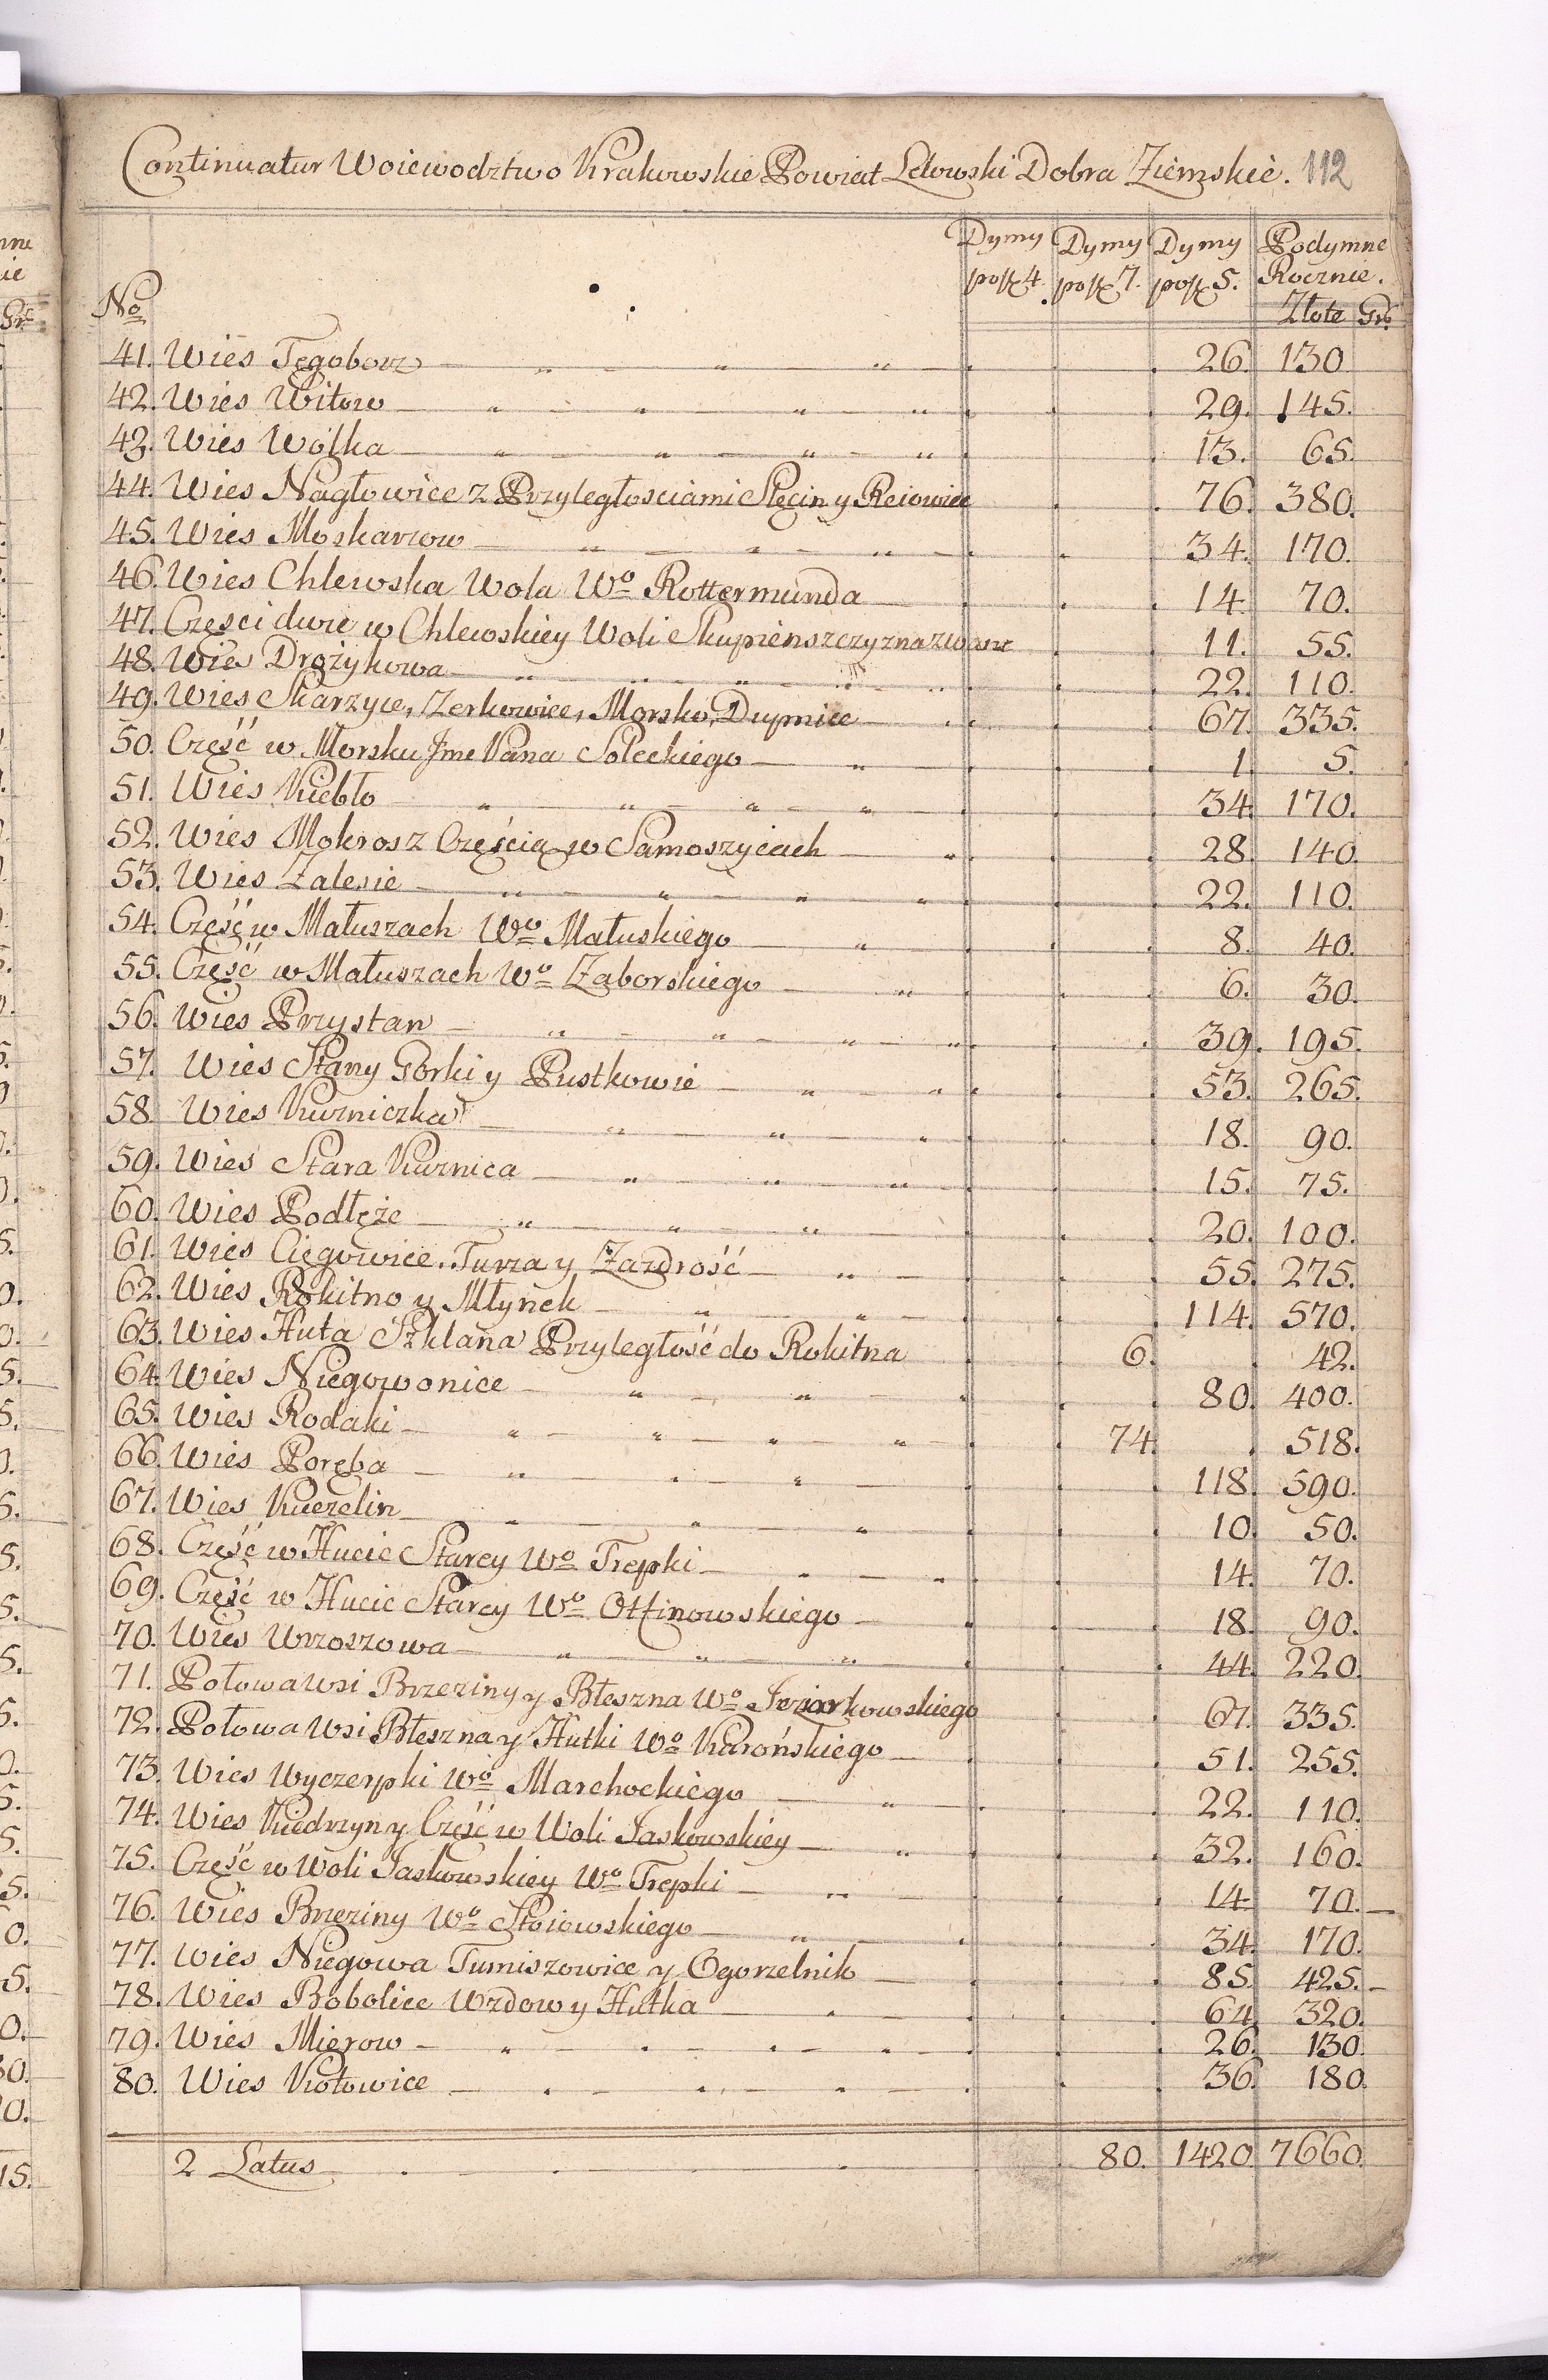 Continuatur Woiewodztwo Krakowskie Powiat Lelowski Dobra Ziemskie. 112
No Dymy po 4. Dymy po 7. Dymy po 5. Podymne Rocznie. Złote Gr.
41. Wies Tęgoborz 26. 130
42. Wies Witow 29. 145.
43. Wies Wolka 13. 65.
44. Wies Nagłowice z Przyległosciami Slęcin y Reiowiec 76. 380.
45. Wies Moskarzow 34. 170.
46. Wies Chlewska Wola Wo Rottermunda 14. 70.
47. Częsci dwie w Chlewskiey Woli Skupienszczyzna zwane 11. 55.
48. Wies Drożykowa 22. 110.
49. Wies Skarzyce, Zerkowice, Morsko, Dupnice 67. 335.
50. Część w Morsku Jme Pana Soleckiego 1. 5.
51. Wies Kiebło 34. 170.
52. Wies Mokrosz Częścią w Samoszycach 28. 140.
53. Wies Zalesie 22. 110.
54. Część w Małuszach Wo Małuskiego 8. 40.
55. Część w Małuszach Wo Zaborskiego 6. 30.
56. Wies Przystan 39. 195.
57. Wies Stany Gorki y Pustkowie 53. 265.
58. Wies Kuzniczka 18. 90.
59. Wies Stara Kuznica 15. 75.
60. Wies Podłęże 20. 100.
61. Wies Cięgowice, Turza y Zazdrość 55. 275.
62. Wies Rokitno y Młynek 114. 570.
63. Wies Huta Szklana Przyległość do Rokitna 6. 42.
64. Wies Niegowonice 80. 400.
65. Wies Rodaki 74. 518.
66. Wies Poręba 118. 590.
67. Wies Kuczelin 10. 50.
68. Część w Hucie Starey Wo Trepki 14. 70.
69. Część w Hucie Starey Wo Otfinowskiego 18. 90.
70. Wies Wrzoszowa 44. 220.
71. Połowa Wsi Brzeziny y Błeszna Wo Jeziorkowskiego 67. 335.
72. Połowa Wsi Błeszna y Hutki Wo Karońskiego 51. 255.
73. Wies Wyczerpki Wo Marchockiego 22. 110.
74. Wies Kiedrzyn y Część w Woli Jaskowskiey 32. 160.
75. Część w Woli Jaskowskiey Wo Trepki 14 70.
76. Wies Brzeziny Wo Stoiowskiego 34. 170.
77. Wies Niegowa Tumiszowice y Ogorzelnik 85. 425.
78. Wies Bobolice Wzdow y Hutka 64. 320.
79. Wies Mierow 26. 130.
80. Wies Kotowice 36. 180.
2 Latus 80. 1420. 7660.